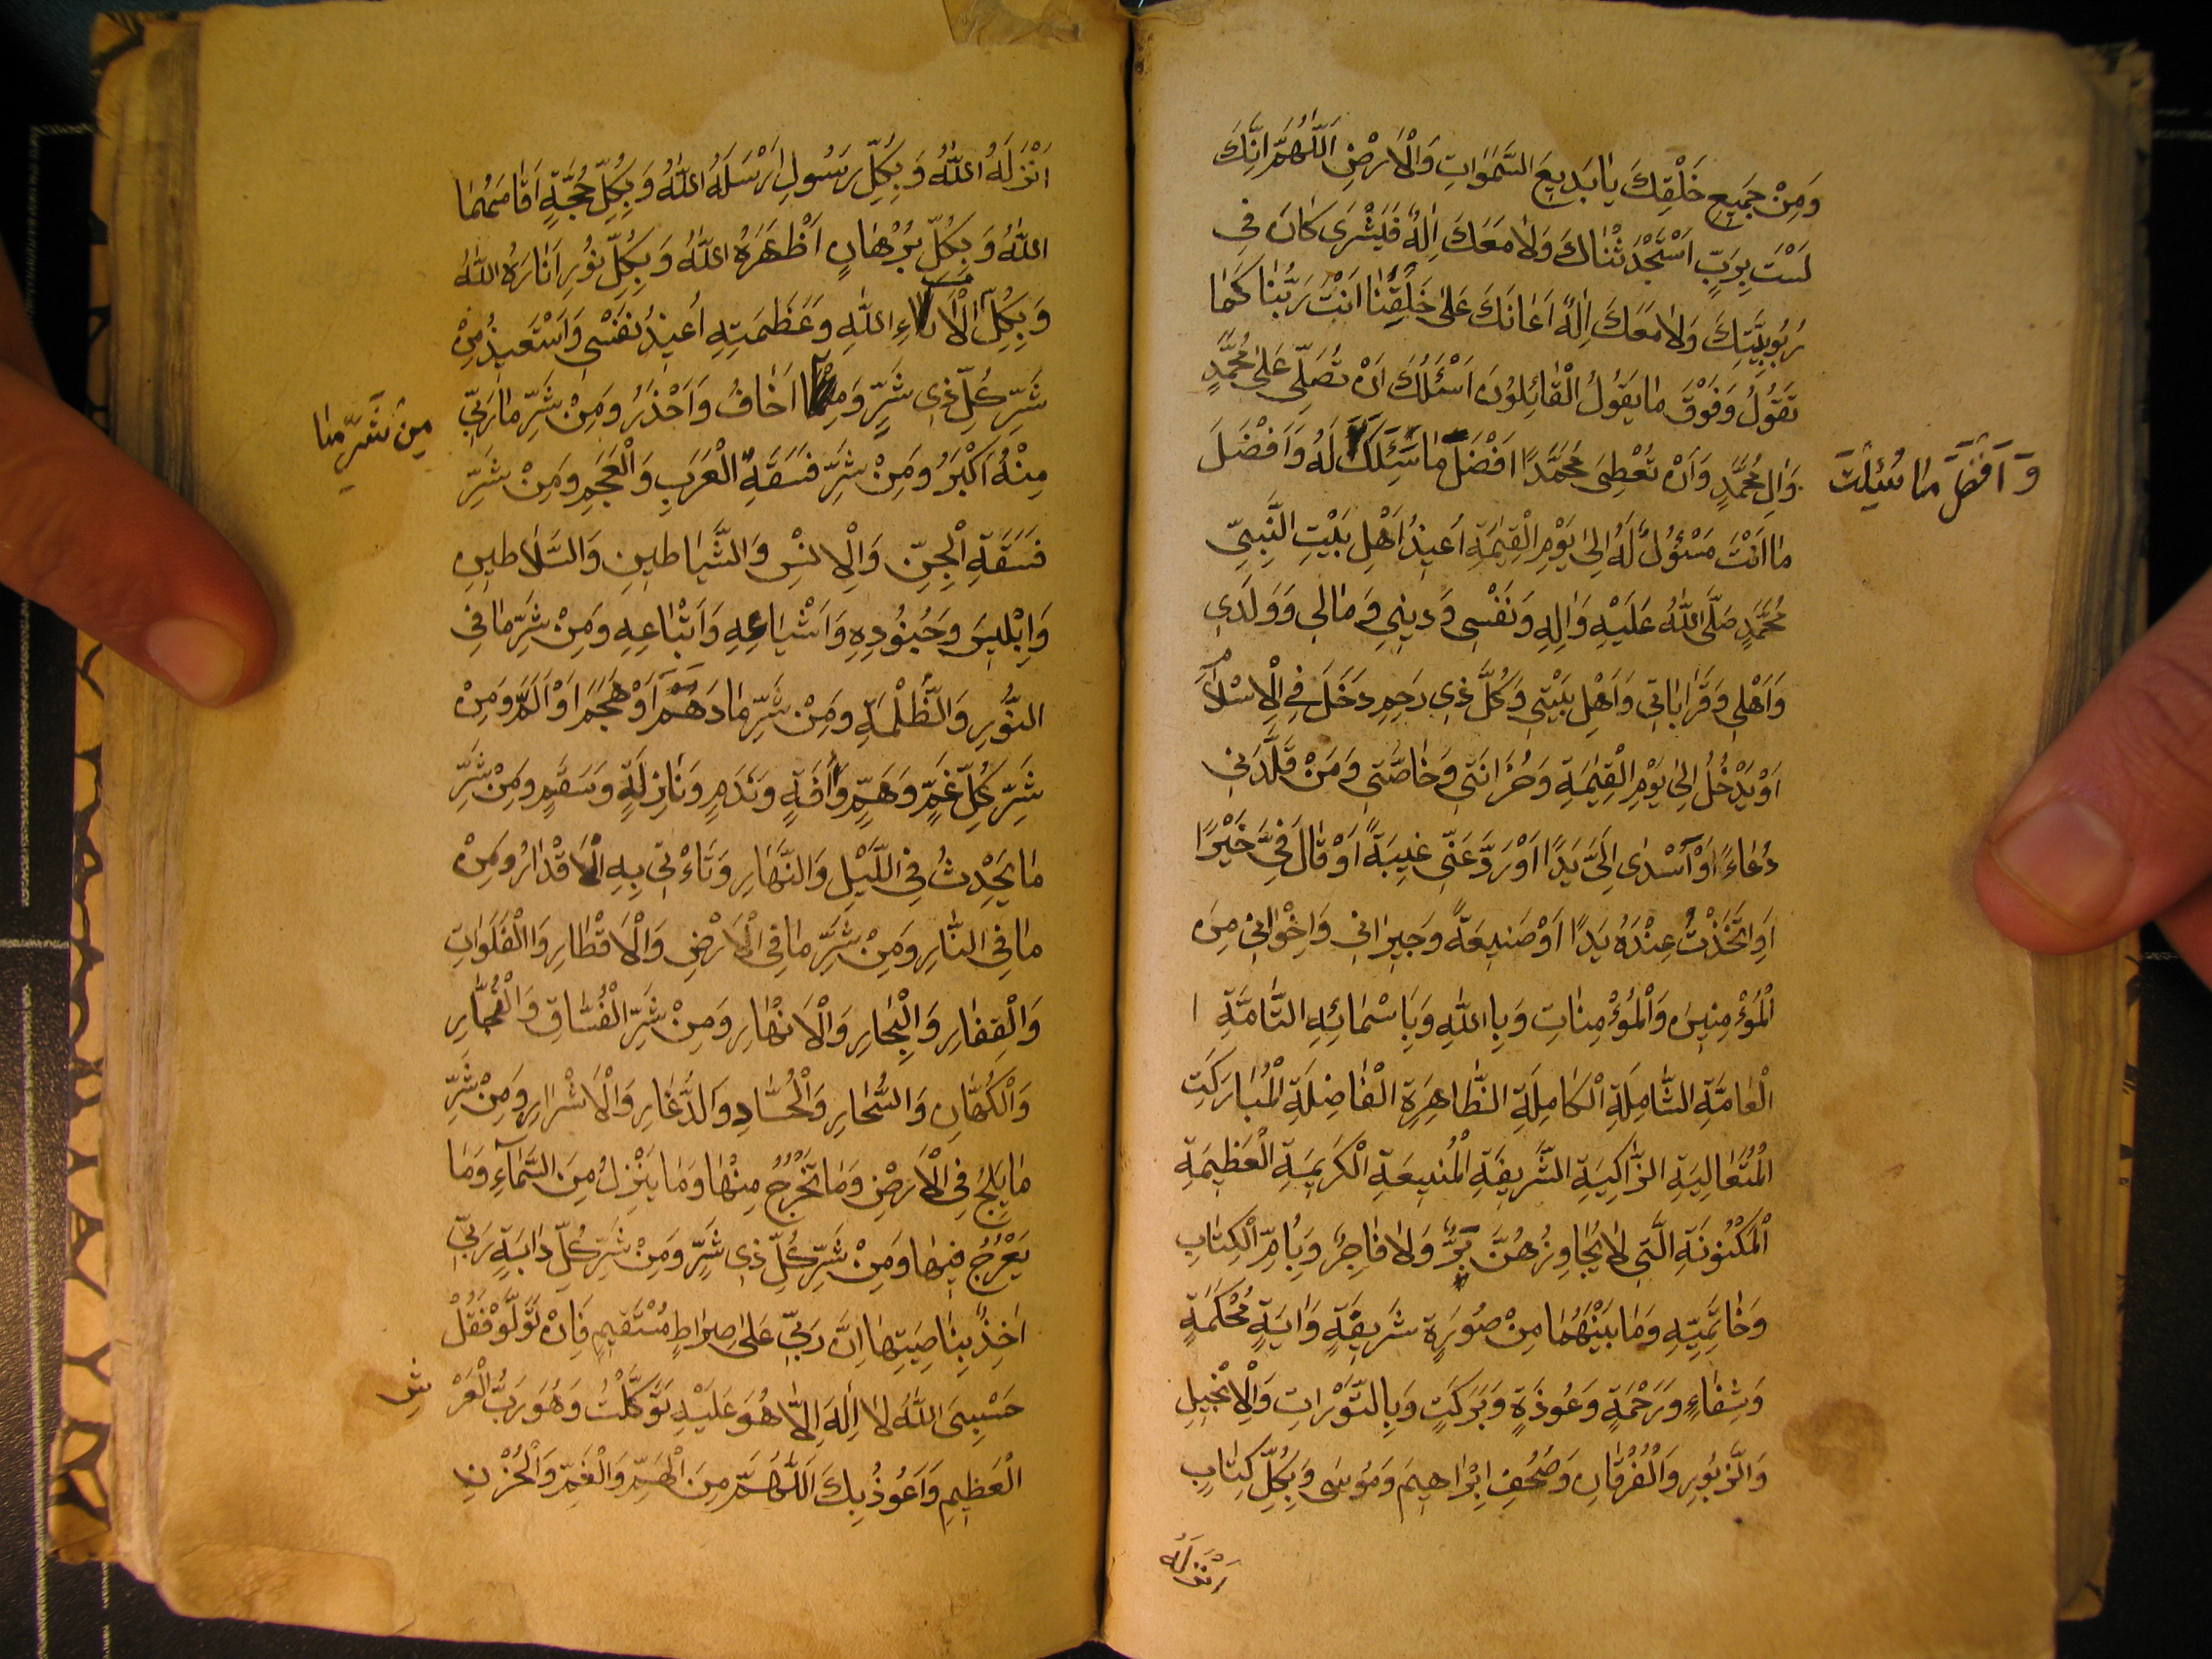 وَمِنْ جَمِيعِ خَلْقِكَ يٰا بَدِيعَ السَّمٰوَاتِ وَالْاَرْضِ اَللّٰهُمَّ اِنَّكَ
لَسْتَ بِرَبٍّ اَسْتَحْدَثْنٰاكَ وَلٰا مَعَكَ اِلٰهٌ فَيَشْرَكَ كٰانَ فِى
رُبُوبِيَّتِكَ وَلٰا مَعَكَ اِلٰهٌ اَعٰانَكَ عَلىٰ خَلْقِنٰا اَنْتَ رَبُّنٰا كَمٰا
تَقُولُ وَفَوْقَ مٰا يَقُولُ الْقٰائِلُونَ اَسْئَلُكَ اَنْ تُصَلِّىَ عَلىٰ مُحَمَّدٍ
وَاٰلِ مُحَمَّدٍ وَاَنْ تُعْطِىَ مُحَمَّدًا اَفْضَلَ مٰا سَئَلَكَ لَهُ وَاَفْضَلَ
وَ اَفْضَلَ مٰا سُئِلْتَ
مٰا اَنْتَ مَسْؤُلٌ لَهُ اِلىٰ يَوْمِ الْقِيٰمَةِ اُعِيذُ اَهْلَ بَيْتِ النَّبِىِّ
مُحَمَّدٍ صَلَّى اللّٰهُ عَلَيْهِ وَاٰلِهِ وَنَفْسِى وَدِينِى وَمٰالِى وَوَلَدِى
وَاَهْلِى وَقَرٰابٰاتِى وَاَهْلَ بَيْتِى وَكُلَّ ذِى رَحِمٍ دَخَلَ فِى الْاِسْلٰامِ
اَوْ يَدْخُلُ اِلىٰ يَوْمِ الْقِيٰمَةِ وَحُزٰانَتِى وَخٰاصَّتِى وَمَنْ قَلَّدَنِى
دُعٰاءً اَوْ اَسْدٰى اِلَىَّ يَدًا اَوْ رَدَّ عَنِّى غِيبَةً اَوْ قٰالَ فِىَّ خَيْرًا
اَوِ اتَّخَذْتُ عِنْدَهُ يَدًا اَوْ صَنِيعَةً وَجِيرٰانِى وَاِخْوٰانِى مِنَ
الْمُؤْمِنِينَ وَالْمُؤْمِنٰاتِ وَبِاللّٰهِ وَبِاَسْمٰائِهِ التّٰامَّةِ
الْعٰامَّةِ الشّٰامِلَةِ الْكٰامِلَةِ الطّٰاهِرَةِ الْفٰاضِلَةِ الْمُبٰارَكَتِ
الْمُتَعٰالِيَةِ الزّٰاكِيَةِ الشَّرِيفَةِ الْمَنِيعَةِ الْكَرِيمَةِ الْعَظِيمَةِ
الْمَكْنُونَةِ الَّتِى لٰا يُجٰاوِزُهُنَّ بَرٌّ وَلٰا فٰاجِرٌ وَبِاُمِّ الْكِتٰابِ
وَخٰاتِمَتِهِ وَمٰا بَيْنَهُمٰا مِنْ صُورَةٍ شَرِيفَةٍ وَاٰيَةٍ مُحْكَمَةٍ
وَشِفٰاءٍ وَرَحْمَةٍ وَعُوذَةٍ وَبَرَكَتٍ وَبِالتَّوْرٰاتِ وَالْاِنْجِيلِ
وَالزَّبُورِ وَالْفُرْقٰانِ وَصُحُفِ اِبْرٰاهِيمَ وَمُوسىٰ وَبِكُلِّ كِتٰابٍ
اَنْزَلَهُ
اَنْزَلَهُ اللّٰهُ وَبِكُلِّ رَسُولٍ اَرْسَلَهُ اللّٰهُ وَبِكُلِّ حُجَّةٍ اَقٰامَهٰا
اللّٰهُ وَبِكُلِّ بُرْهٰانٍ اَظْهَرَهُ اللّٰهُ وَبِكُلِّ نُورٍ اَنٰارَهُ اللّٰهُ
وَبِكُلِّ اٰلٰاءِ اللّٰهِ وَعَظَمَتِهِ اُعِيذُ نَفْسِى وَاَسْتَعِيذُ مِنْ
شَرِّ كُلِّ ذِى شَرٍّ وَمِمّٰا اَخٰافُ وَاَحْذَرُ وَمِنْ شَرِّ مٰا رَبِّى
مِنْ شَرِّ مٰا
مِنْهُ اَكْبَرُ وَمِنْ شَرِّ فَسَقَةِ الْعَرَبِ وَالْعَجَمِ وَمِنْ شَرِّ
فَسَقَةِ الْجِنِّ وَالْاِنْسِ وَالشَّيٰاطِينِ وَالسَّلٰاطِينِ
وَاِبْلِيسَ وَجُنُودِهِ وَاَشْيٰاعِهِ وَاَتْبٰاعِهِ وَمِنْ شَرِّ مٰا فِى
النُّورِ وَالظُّلْمَةِ وَمِنْ شَرِّ مٰا دَهَمَ اَوْ هَجَمَ اَوْ اَلَمَّ وَمِنْ
شَرِّ كُلِّ غَمٍّ وَهَمٍّ وَاٰفَةٍ وَنَدَمٍ وَنٰازِلَةٍ وَسَقَمٍ وَمِنْ شَرِّ
مٰا يَحْدِثُ فِى اللَّيْلِ وَالنَّهٰارِ وَتَاْتِى بِهِ الْاَقْدٰارُ وَمِنْ
مٰا فِى النّٰارِ وَمِنْ شَرِّ مٰا فِى الْاَرْضِ وَالْاَقْطٰارِ وَالْفَلَوٰاتِ
وَالْقِفٰارِ وَالْبِحٰارِ وَالْاَنْهٰارِ وَمِنْ شَرِّ الْفُسّٰاقِ وَالْفُجّٰارِ
وَالْكُهّٰانِ وَالسُّحّٰارِ وَالْحُسّٰادِ وَالدُّعّٰارِ وَالْاَشْرٰارِ وَمِنْ شَرِّ
مٰا يَلِجُ فِى الْاَرْضِ وَمٰا يَخْرُجُ مِنْهٰا وَمٰا يَنْزِلُ مِنَ السَّمٰآءِ وَمٰا
يَعْرُجُ فِيهٰا وَمِنْ شَرِّ كُلِّ ذِى شَرٍّ وَمِنْ شَرِّ كُلِّ دٰابَّةٍ رَبِّى
اٰخِذٌ بِنٰاصِيَتِهٰا اِنَّ رَبِّى عَلىٰ صِرٰاطٍ مُسْتَقِيمٍ فَاِنْ تَوَلَّوْ فَقُلْ
حَسْبِىَ اللّٰهُ لٰا اِلٰهَ اِلَّا هُوَ عَلَيْهِ تَوَكَّلْتُ وَهُوَ رَبُّ الْعَرْ ش
الْعَظِيمِ وَاَعُوذُ بِكَ اَللّٰهُمَّ مِنَ الْهَمِّ وَالْغَمِّ وَالْحُزْنِ